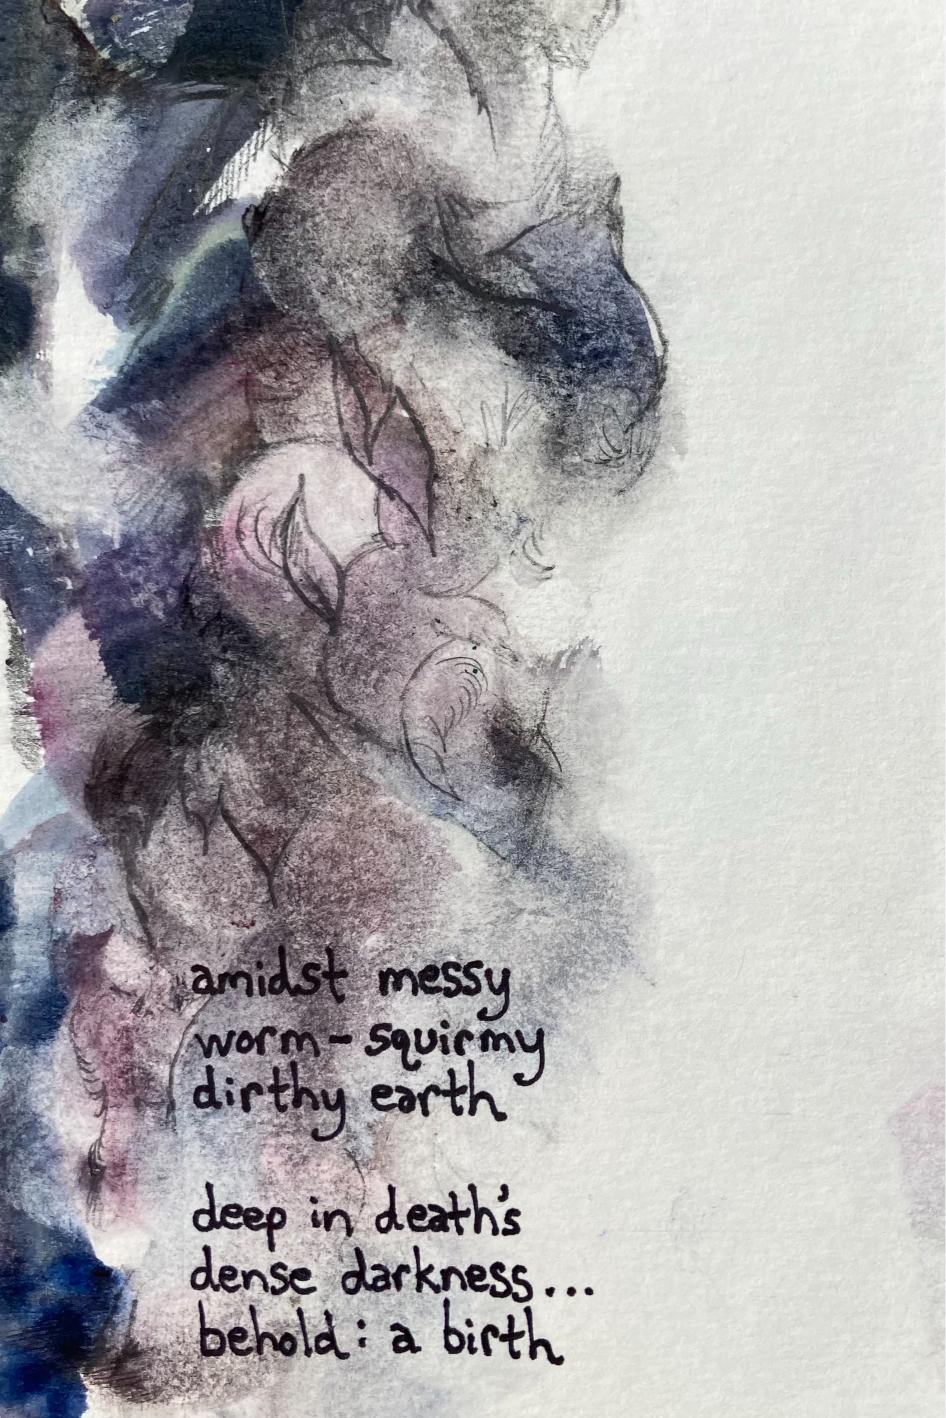 amidst messy
worm-squirmy
dirthy earth
deep in death's
dense darkness...
behold: a birth